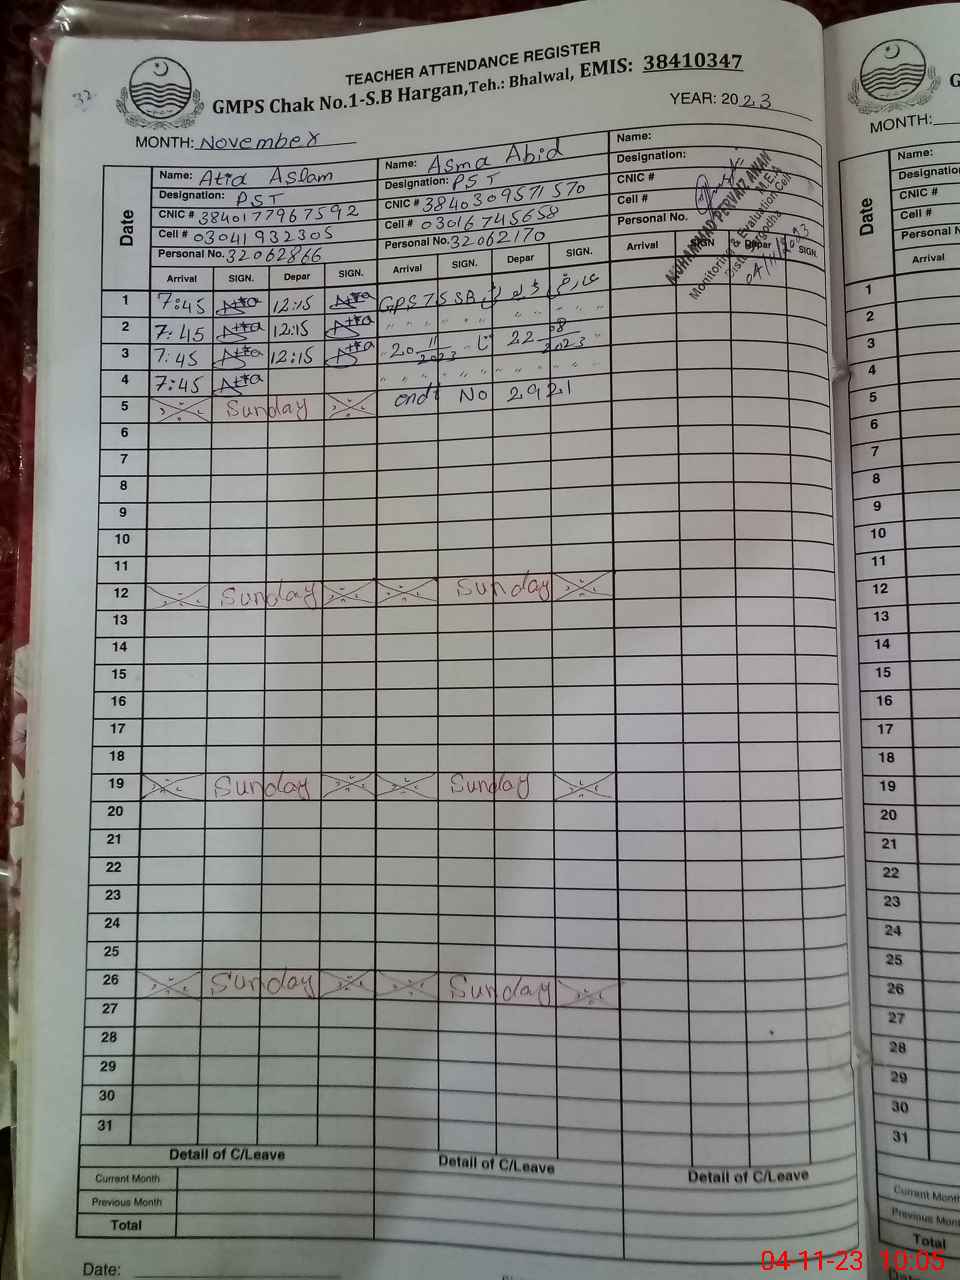 32
TEACHER ATTENDANCE REGISTER
GMPS Chak No.1-S.B Hargan, Teh.: Bhalwal, EMIS: 38410347
MONTH: November YEAR: 2023
Date
Name: Atia Aslam
Designation: PST
CNIC # 3840177967592
Cell # 03041932305
Personal No. 32062866
Arrival SIGN. Depar SIGN.
Name: Asma Abid
Designation: PST
CNIC # 3840309571570
Cell # 03016745658
Personal No. 32062170
Arrival SIGN. Depar SIGN.
Name:
Designation:
CNIC #
Cell #
Personal No.
Arrival SIGN Depar SIGN.
MUHAMMAD PERVAIZ AWAN
M.E.A
Monitoring & Evaluation Cell
Distt. Sargodha
04/11/2023
1 7:45 Atia 12:15 Atia GPS 75 SB عارضی ڈیوٹی
2 7:45 Atia 12:15 Atia " " " " " " " "
3 7:45 Atia 12:15 Atia 20-11-2023 تا 22-08-2023
4 7:45 Atia " " " " " " " "
5 Sunday No 2921
6
7
8
9
10
11
12 Sunday Sunday
13
14
15
16
17
18
19 Sunday Sunday
20
21
22
23
24
25
26 Sunday Sunday
27
28
29
30
31
Detail of C/Leave Detail of C/Leave Detail of C/Leave
Current Month
Previous Month
Total
Date:
GMP
MONTH:
Date
Name:
Designation
CNIC #
Cell #
Personal N
Arrival
1
2
3
4
5
6
7
8
9
10
11
12
13
14
15
16
17
18
19
20
21
22
23
24
25
26
27
28
29
30
31
Current Month
Previous Mon
Total
04-11-23 10:05